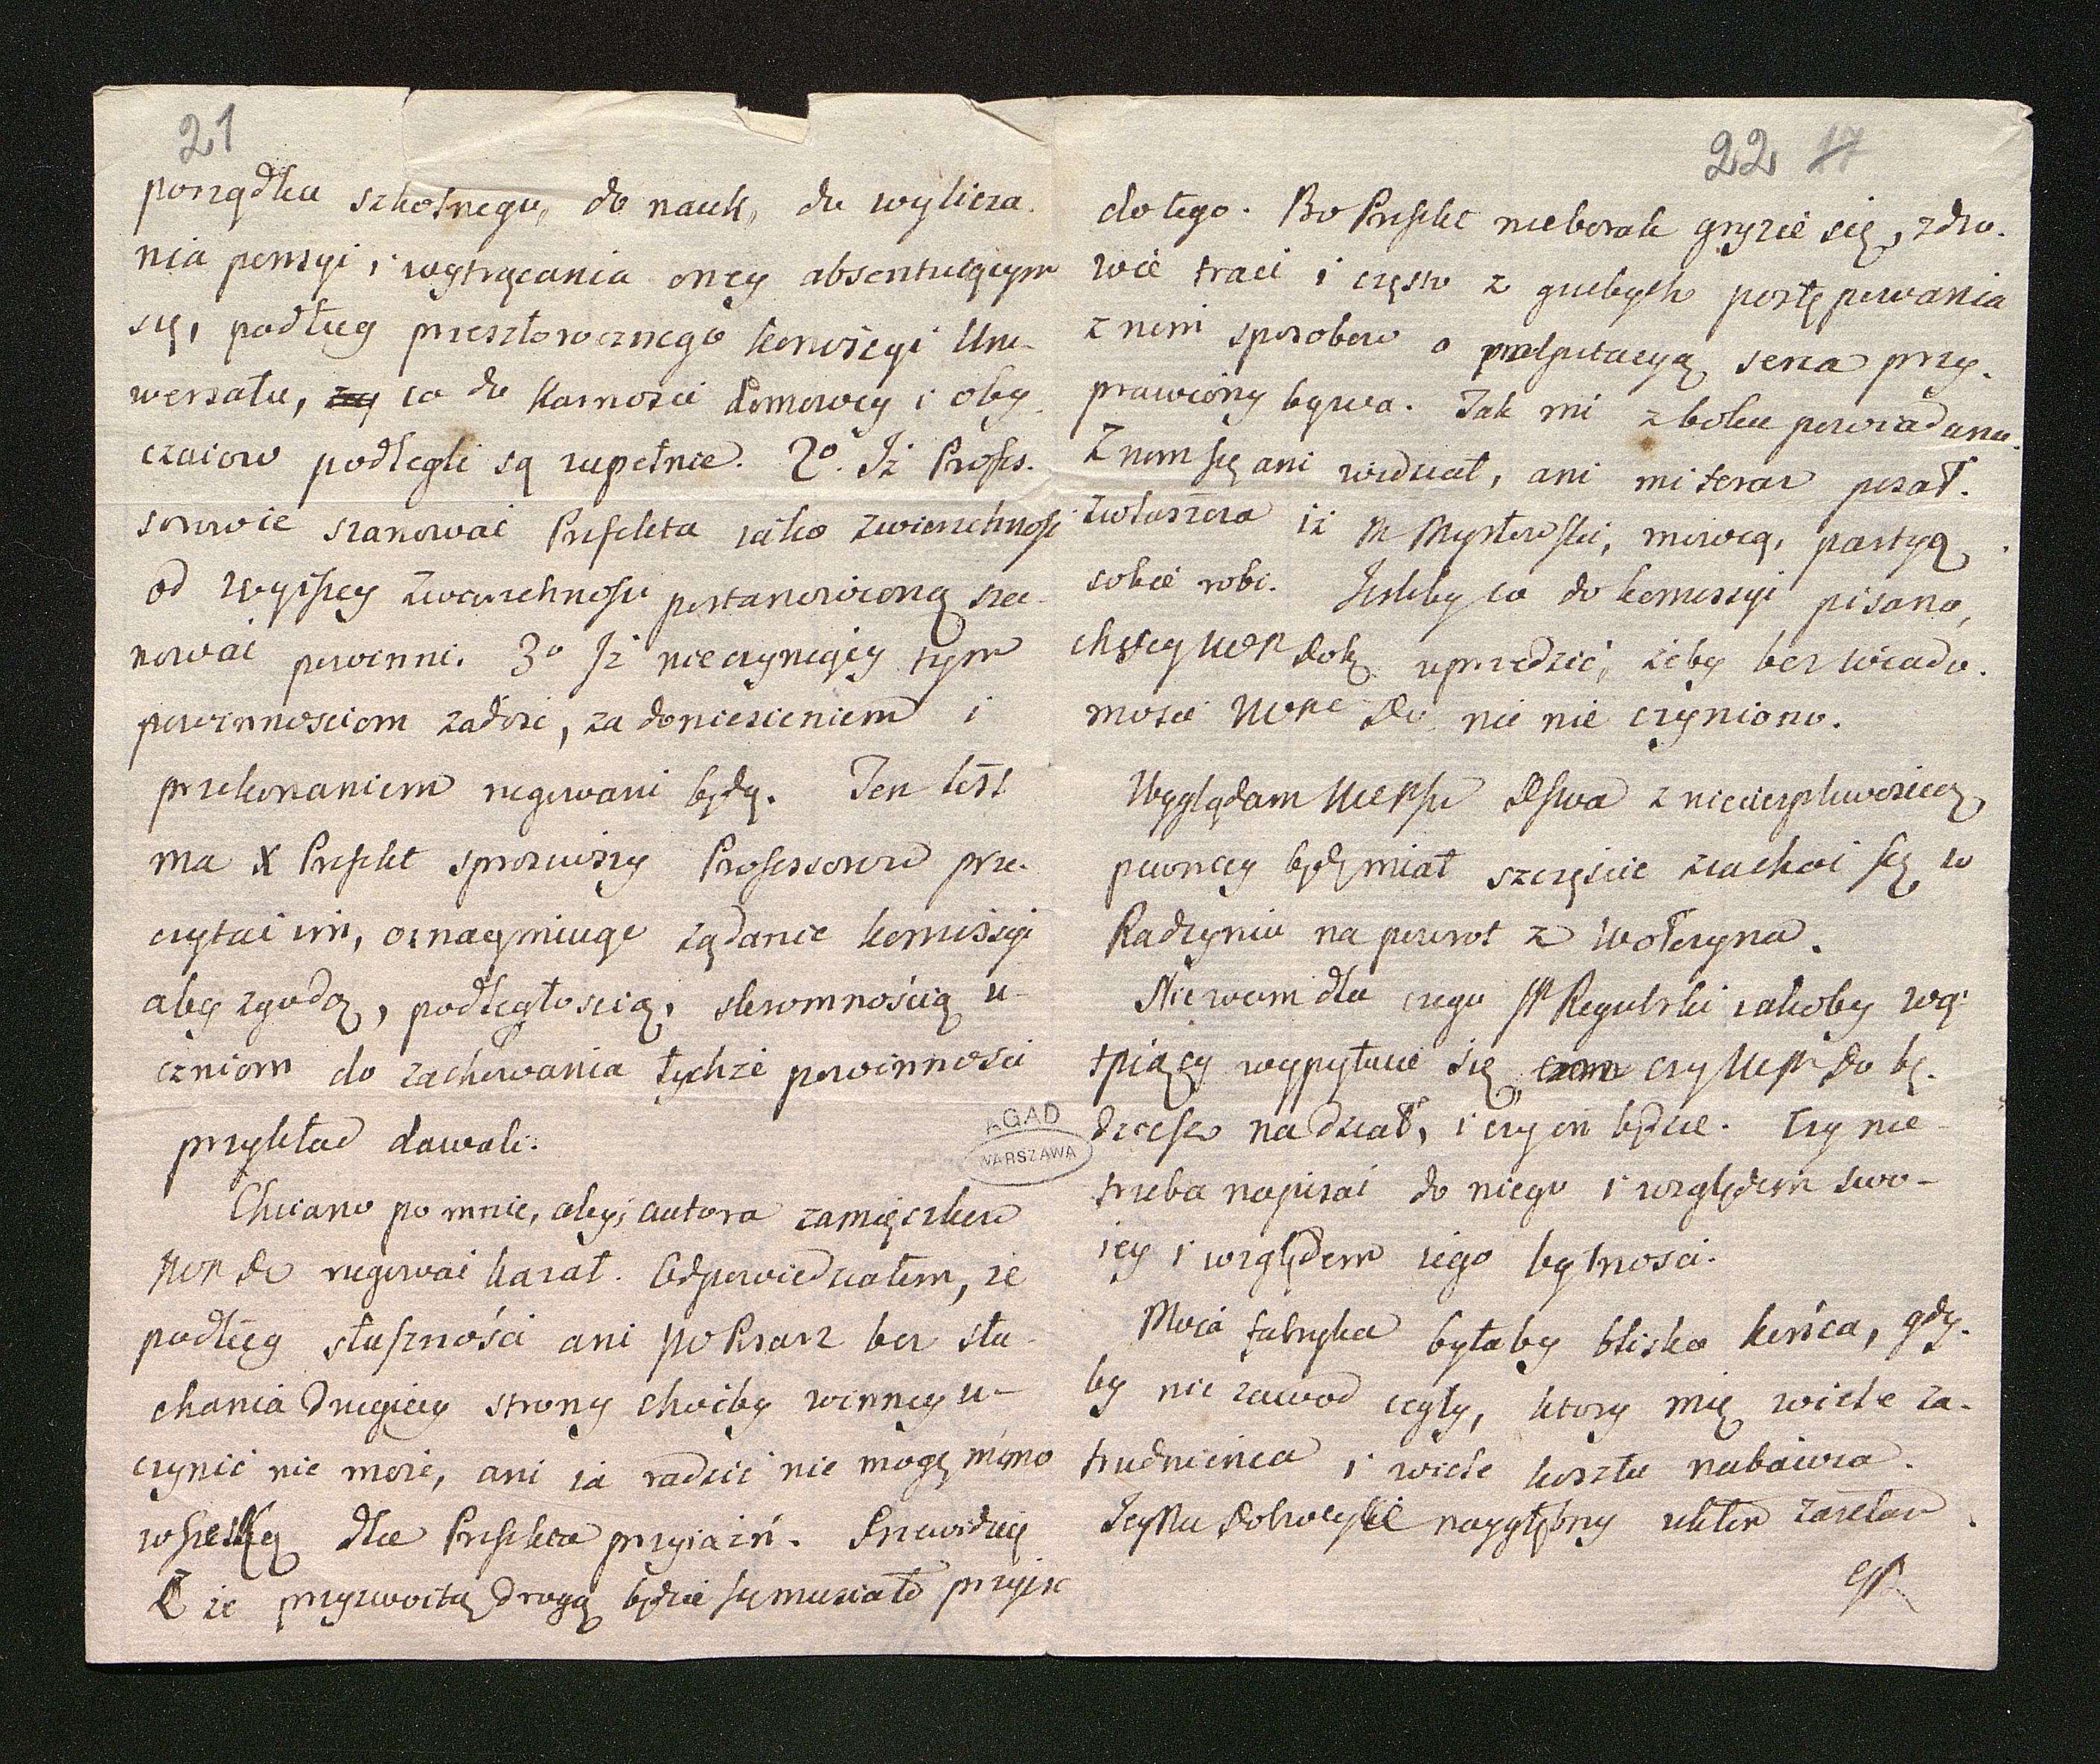 21
porządku szkolnego, do nauk, do wylicza-
nia pensyi i wytrącania oney absentuiącym
się, podług przeszłorocznego komissyi Uni-
wersału, co do karnosci domowey i oby-
czaiow podlegli są zupełnie. 2o. Iż Profes-
sorowie szanować Prefekta iako zwierzchność
od wyższey zwierzchności postanowioną sza-
nować powinni. 3o Iż nieczyniący tym
powinnosciom zadosć, za doniesieniem i
przekonaniem rugowani będą. Ten list
ma X Prefekt sprosiwszy Professorow prze-
czytać im, oznaymuiąc żądanie komissyi
aby zgodą, podległoscią, skromnością u-
czniom do zachowania tychże powinnosci
przykład dawali.
Chciano po mnie, abyś autora zamięszkow
rugować kazał. Odpowiedziałem, że
podług słuszności ani bez słu-
chania drugiey strony choćby winney u-
czynić nie może, ani ia radzić nie mogę mimo
wszelką dla Prefekta przyiaźń. Przewiduię
że przyzwoitą drogą będzie się musiało przyiść
AGAD
WARSZAWA
22 17
do tego. Bo Prefekt nieborak gryzie się, zdro-
wie traci i często z grubych postępowania
z nim sposobow o palpitacyą serca przy-
prawiony bywa. Tak mi z boku powiadano.
Z nim się ani widział, ani mi teraz pisał.
Zwłaszcza iż Mysłowski, mowcą, partyą
sobie robi. Jesliby co do komissyi pisano,
chciey uprzedzić, żeby bez wiado-
mosci nic nie czyniono.
Wyglądam z niecierpliwoscią
pewney będę miał szczęscie ziachać się w
Radzyniu na powrot z Wołczyna.
Nie wiem dla czego JP Regulski iakoby wą-
tpiący wypytuie się czy bę-
dziesz na dział, i czy on będzie. Czy nie
trzeba napisać do niego i względem swo-
iey i względem iego bytnosci.
Moia fabryka byłaby blisko końca, gdy-
by nie zawod cegły, ktory mię wiele za-
trudnienia i wiele kosztu nabawia.
nayygłębszy ukłon zasełam